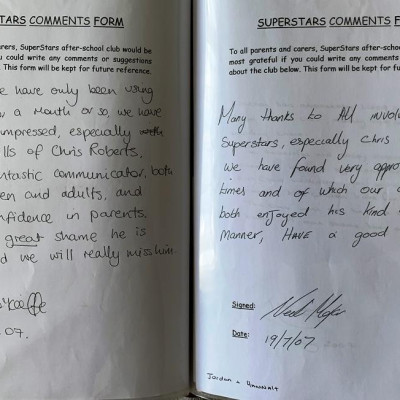 TARS COMMENTS FORM
arers, SuperStars after-school club would be
u could write any comments or suggestions
. This form will be kept for future reference.
e have only been using
a Month or so, we have
impressed, especially with
lls of Chris Roberts,
ntastic communicator, both
en and adults, and
nfidence in parents.
great shame he is
d we will really miss him.
07.
SUPERSTARS COMMENTS F
To all parents and carers, SuperStars after-schoo
most grateful if you could write any comments
about the club below. This form will be kept for fu
Many thanks to All involv
Superstars, especially Chris
we have found very appro
times and of which our c
both enjoyed his kind
manner, HAVE a good
Signed:
Date: 19/7/07
Jordan &